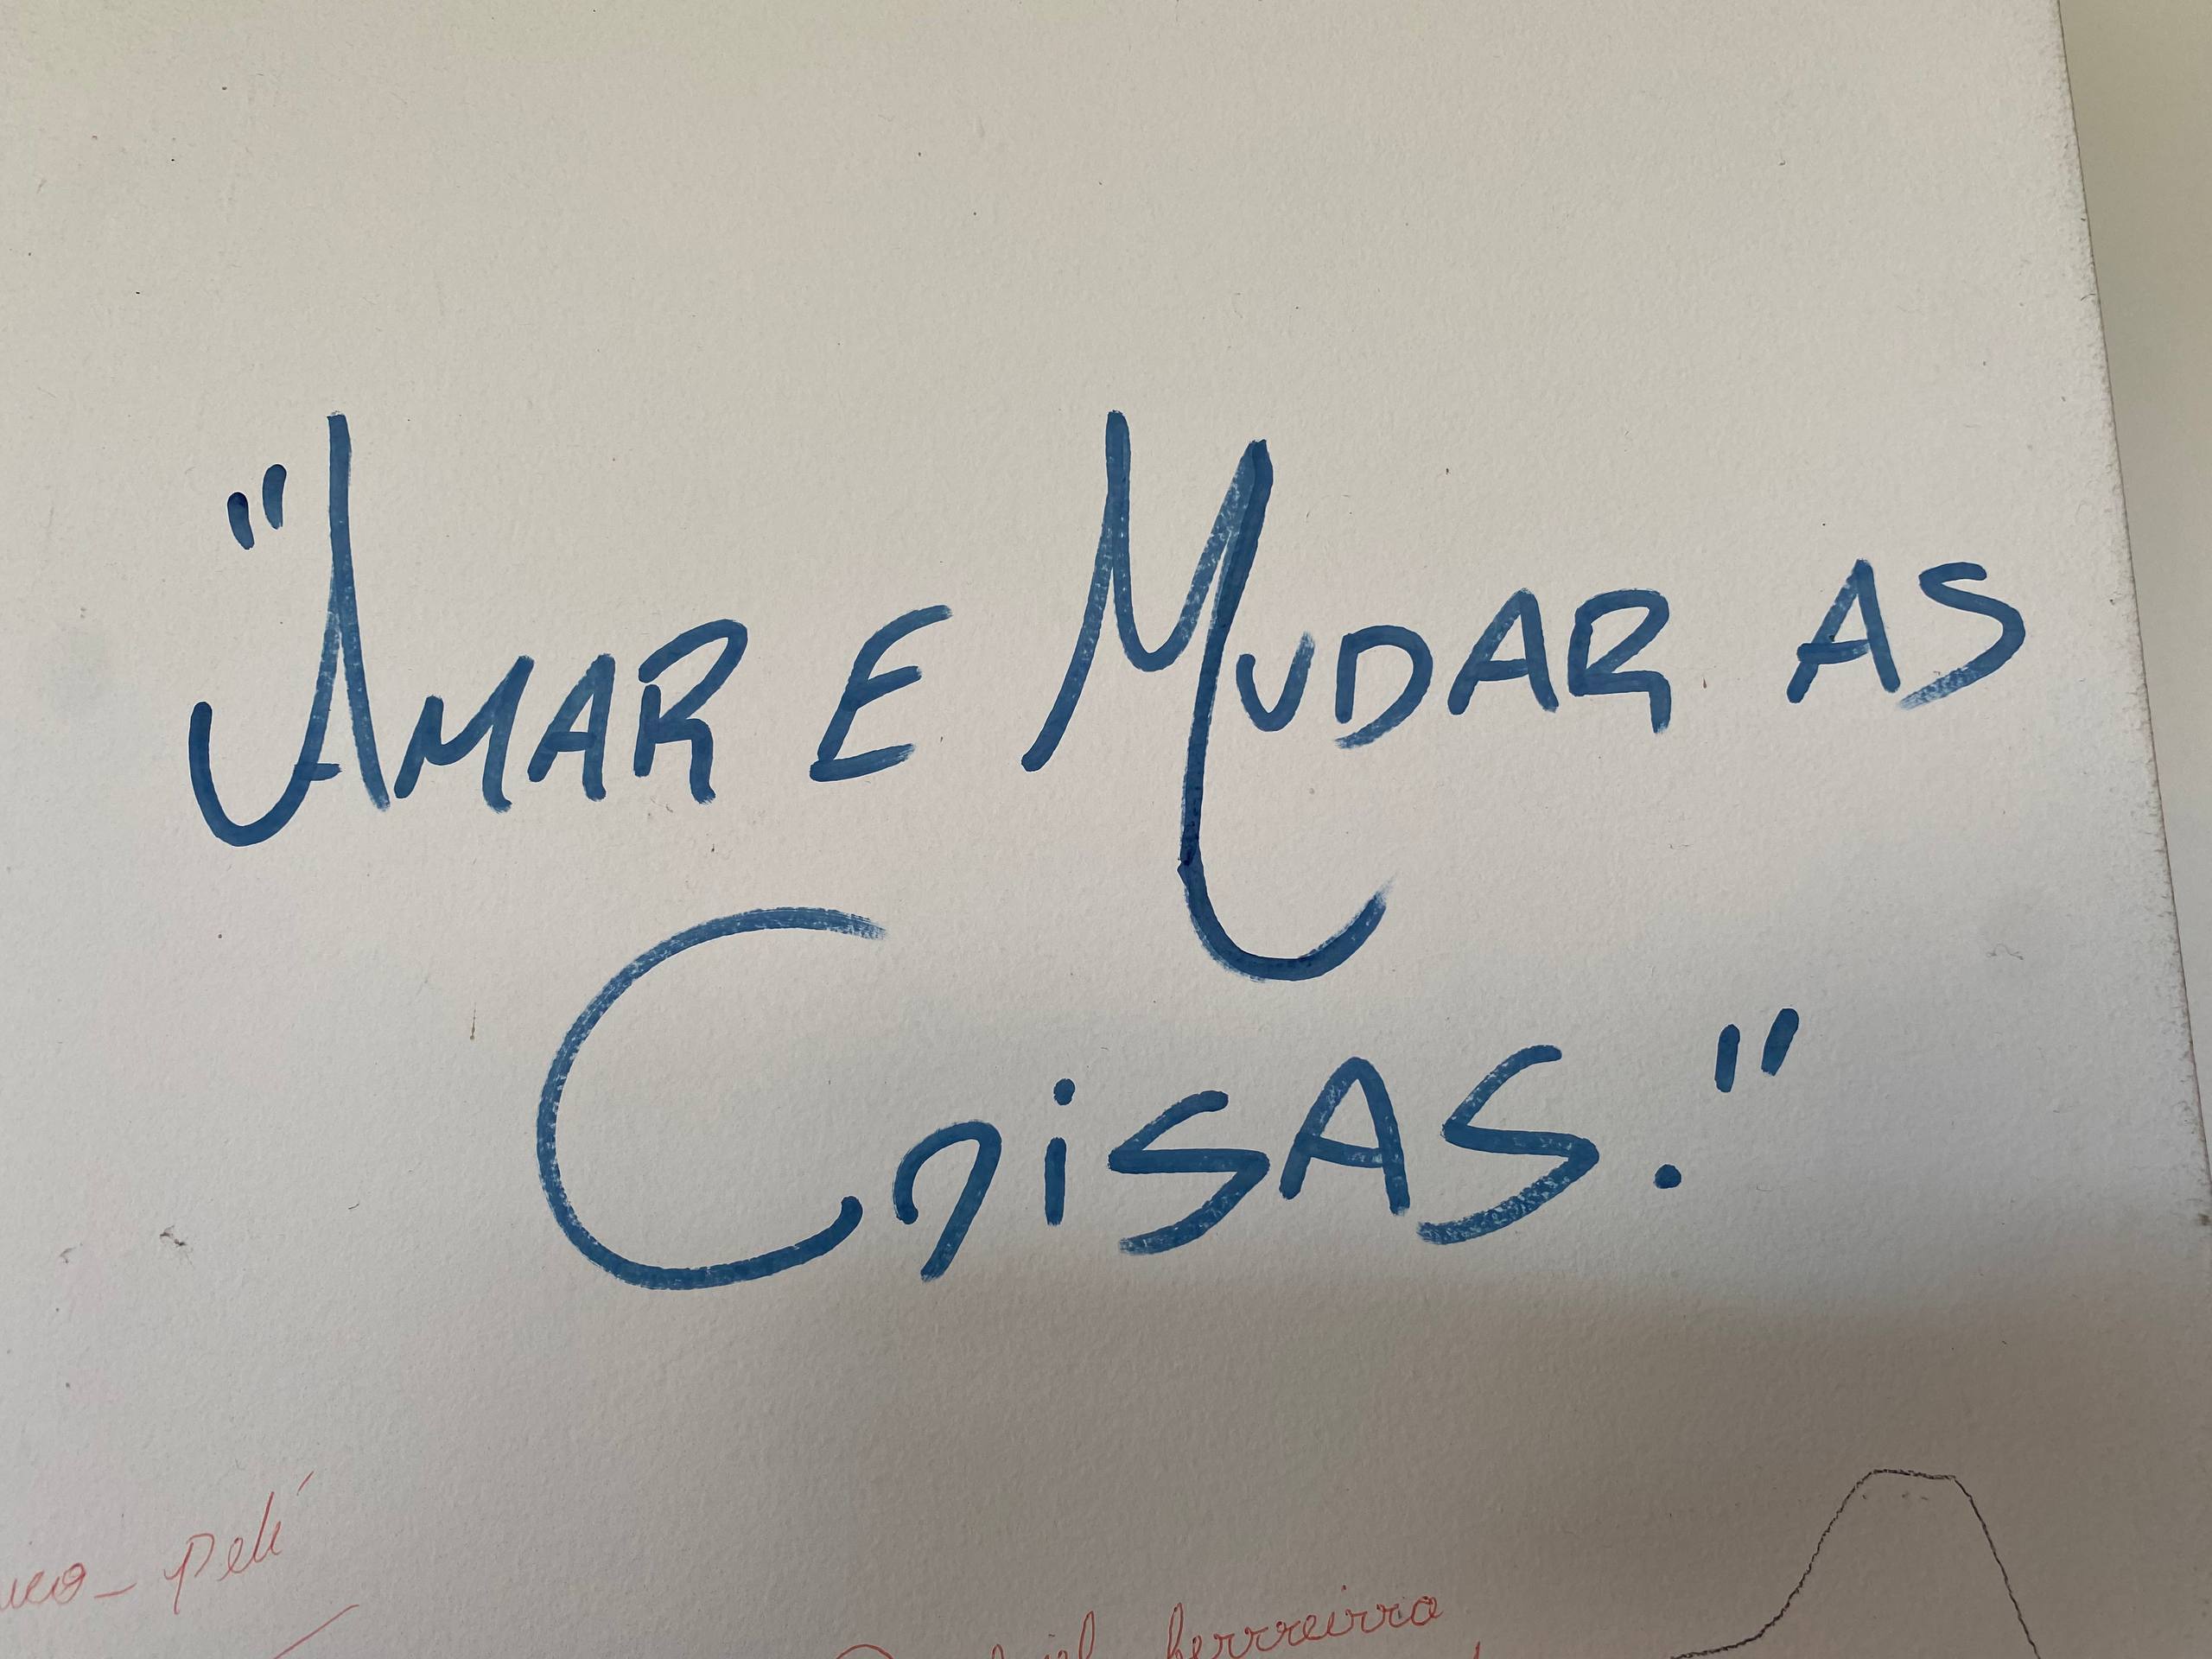 "AMAR E MUDAR AS
COISAS."
Pelé
ferreirra